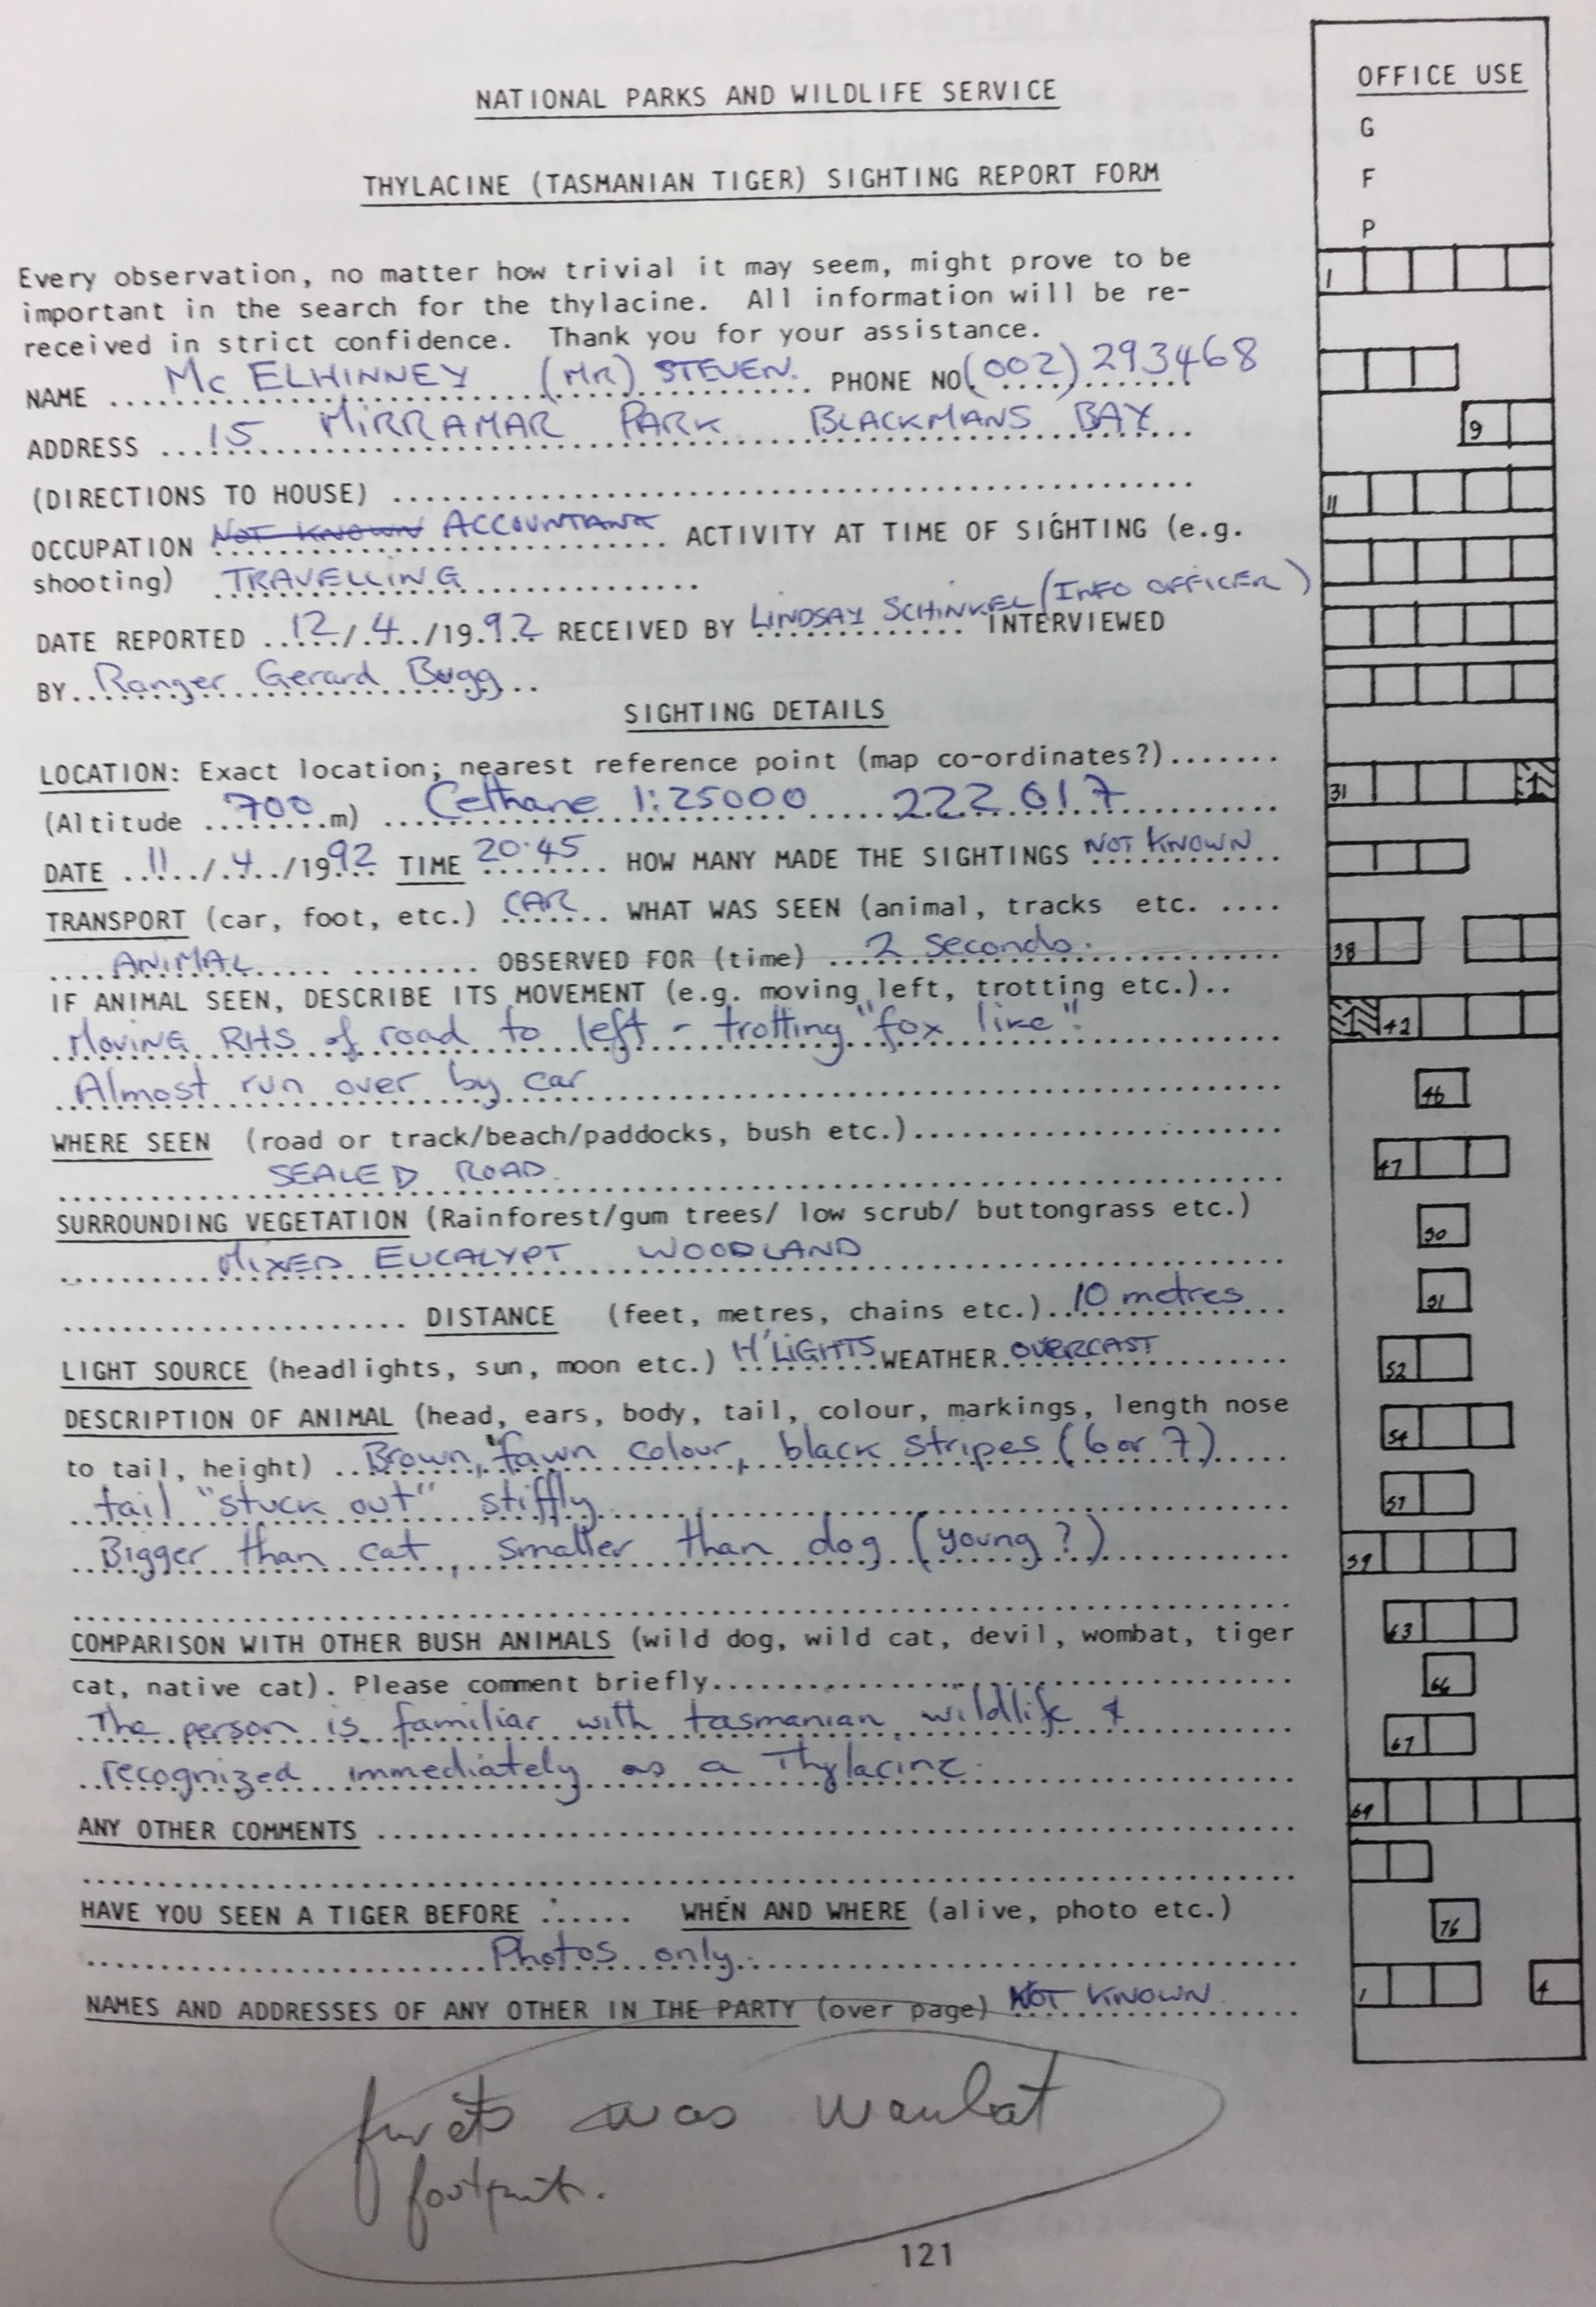 OFFICE USE
G
F
P
NATIONAL PARKS AND WILDLIFE SERVICE
THYLACINE (TASMANIAN TIGER) SIGHTING REPORT FORM
Every observation, no matter how trivial it may seem, might prove to be
important in the search for the thylacine. All information will be re-
received in strict confidence. Thank you for your assistance.
NAME Mc ELHINNEY (MR) STEVEN. PHONE NO (002) 293468
ADDRESS 15 MIRRAMAR PARK BLACKMANS BAY
(DIRECTIONS TO HOUSE)
OCCUPATION NOT KNOWN ACCOUNTANT ACTIVITY AT TIME OF SIGHTING (e.g.
shooting) TRAVELLING
DATE REPORTED 12/4/1992 RECEIVED BY LINDSAY SCHINKEL (INFO OFFICER) INTERVIEWED
BY Ranger Gerard Bugg
SIGHTING DETAILS
LOCATION: Exact location; nearest reference point (map co-ordinates?)
(Altitude 700 m) Cethane 1:25000 222 617
DATE 11/4/1992 TIME 20.45 HOW MANY MADE THE SIGHTINGS NOT KNOWN
TRANSPORT (car, foot, etc.) CAR WHAT WAS SEEN (animal, tracks etc.
ANIMAL OBSERVED FOR (time) 2 seconds.
IF ANIMAL SEEN, DESCRIBE ITS MOVEMENT (e.g. moving left, trotting etc.)
MOVING RHS of road to left - trotting "fox like".
Almost run over by car
WHERE SEEN (road or track/beach/paddocks, bush etc.)
SEALED ROAD.
SURROUNDING VEGETATION (Rainforest/gum trees/ low scrub/ buttongrass etc.)
MIXED EUCALYPT WOODLAND
DISTANCE (feet, metres, chains etc.) 10 metres
LIGHT SOURCE (headlights, sun, moon etc.) H'LIGHTS WEATHER OVERCAST
DESCRIPTION OF ANIMAL (head, ears, body, tail, colour, markings, length nose
to tail, height) Brown, fawn colour, black stripes (6 or 7)
tail "stuck out" stiffly
Bigger than cat, smaller than dog (young?)
COMPARISON WITH OTHER BUSH ANIMALS (wild dog, wild cat, devil, wombat, tiger
cat, native cat). Please comment briefly
The person is familiar with tasmanian wildlife &
recognized immediately as a Thylacine.
ANY OTHER COMMENTS
HAVE YOU SEEN A TIGER BEFORE WHEN AND WHERE (alive, photo etc.)
Photos only.
NAMES AND ADDRESSES OF ANY OTHER IN THE PARTY (over page) NOT KNOWN
was wombat
footprint.
121
1
9
11
31
38
42
46
47
50
51
52
54
57
59
63
66
67
69
76
1
4